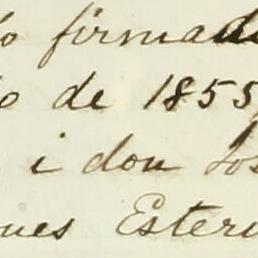 o firmado
o de 1855
i don Jos
ues Esteri